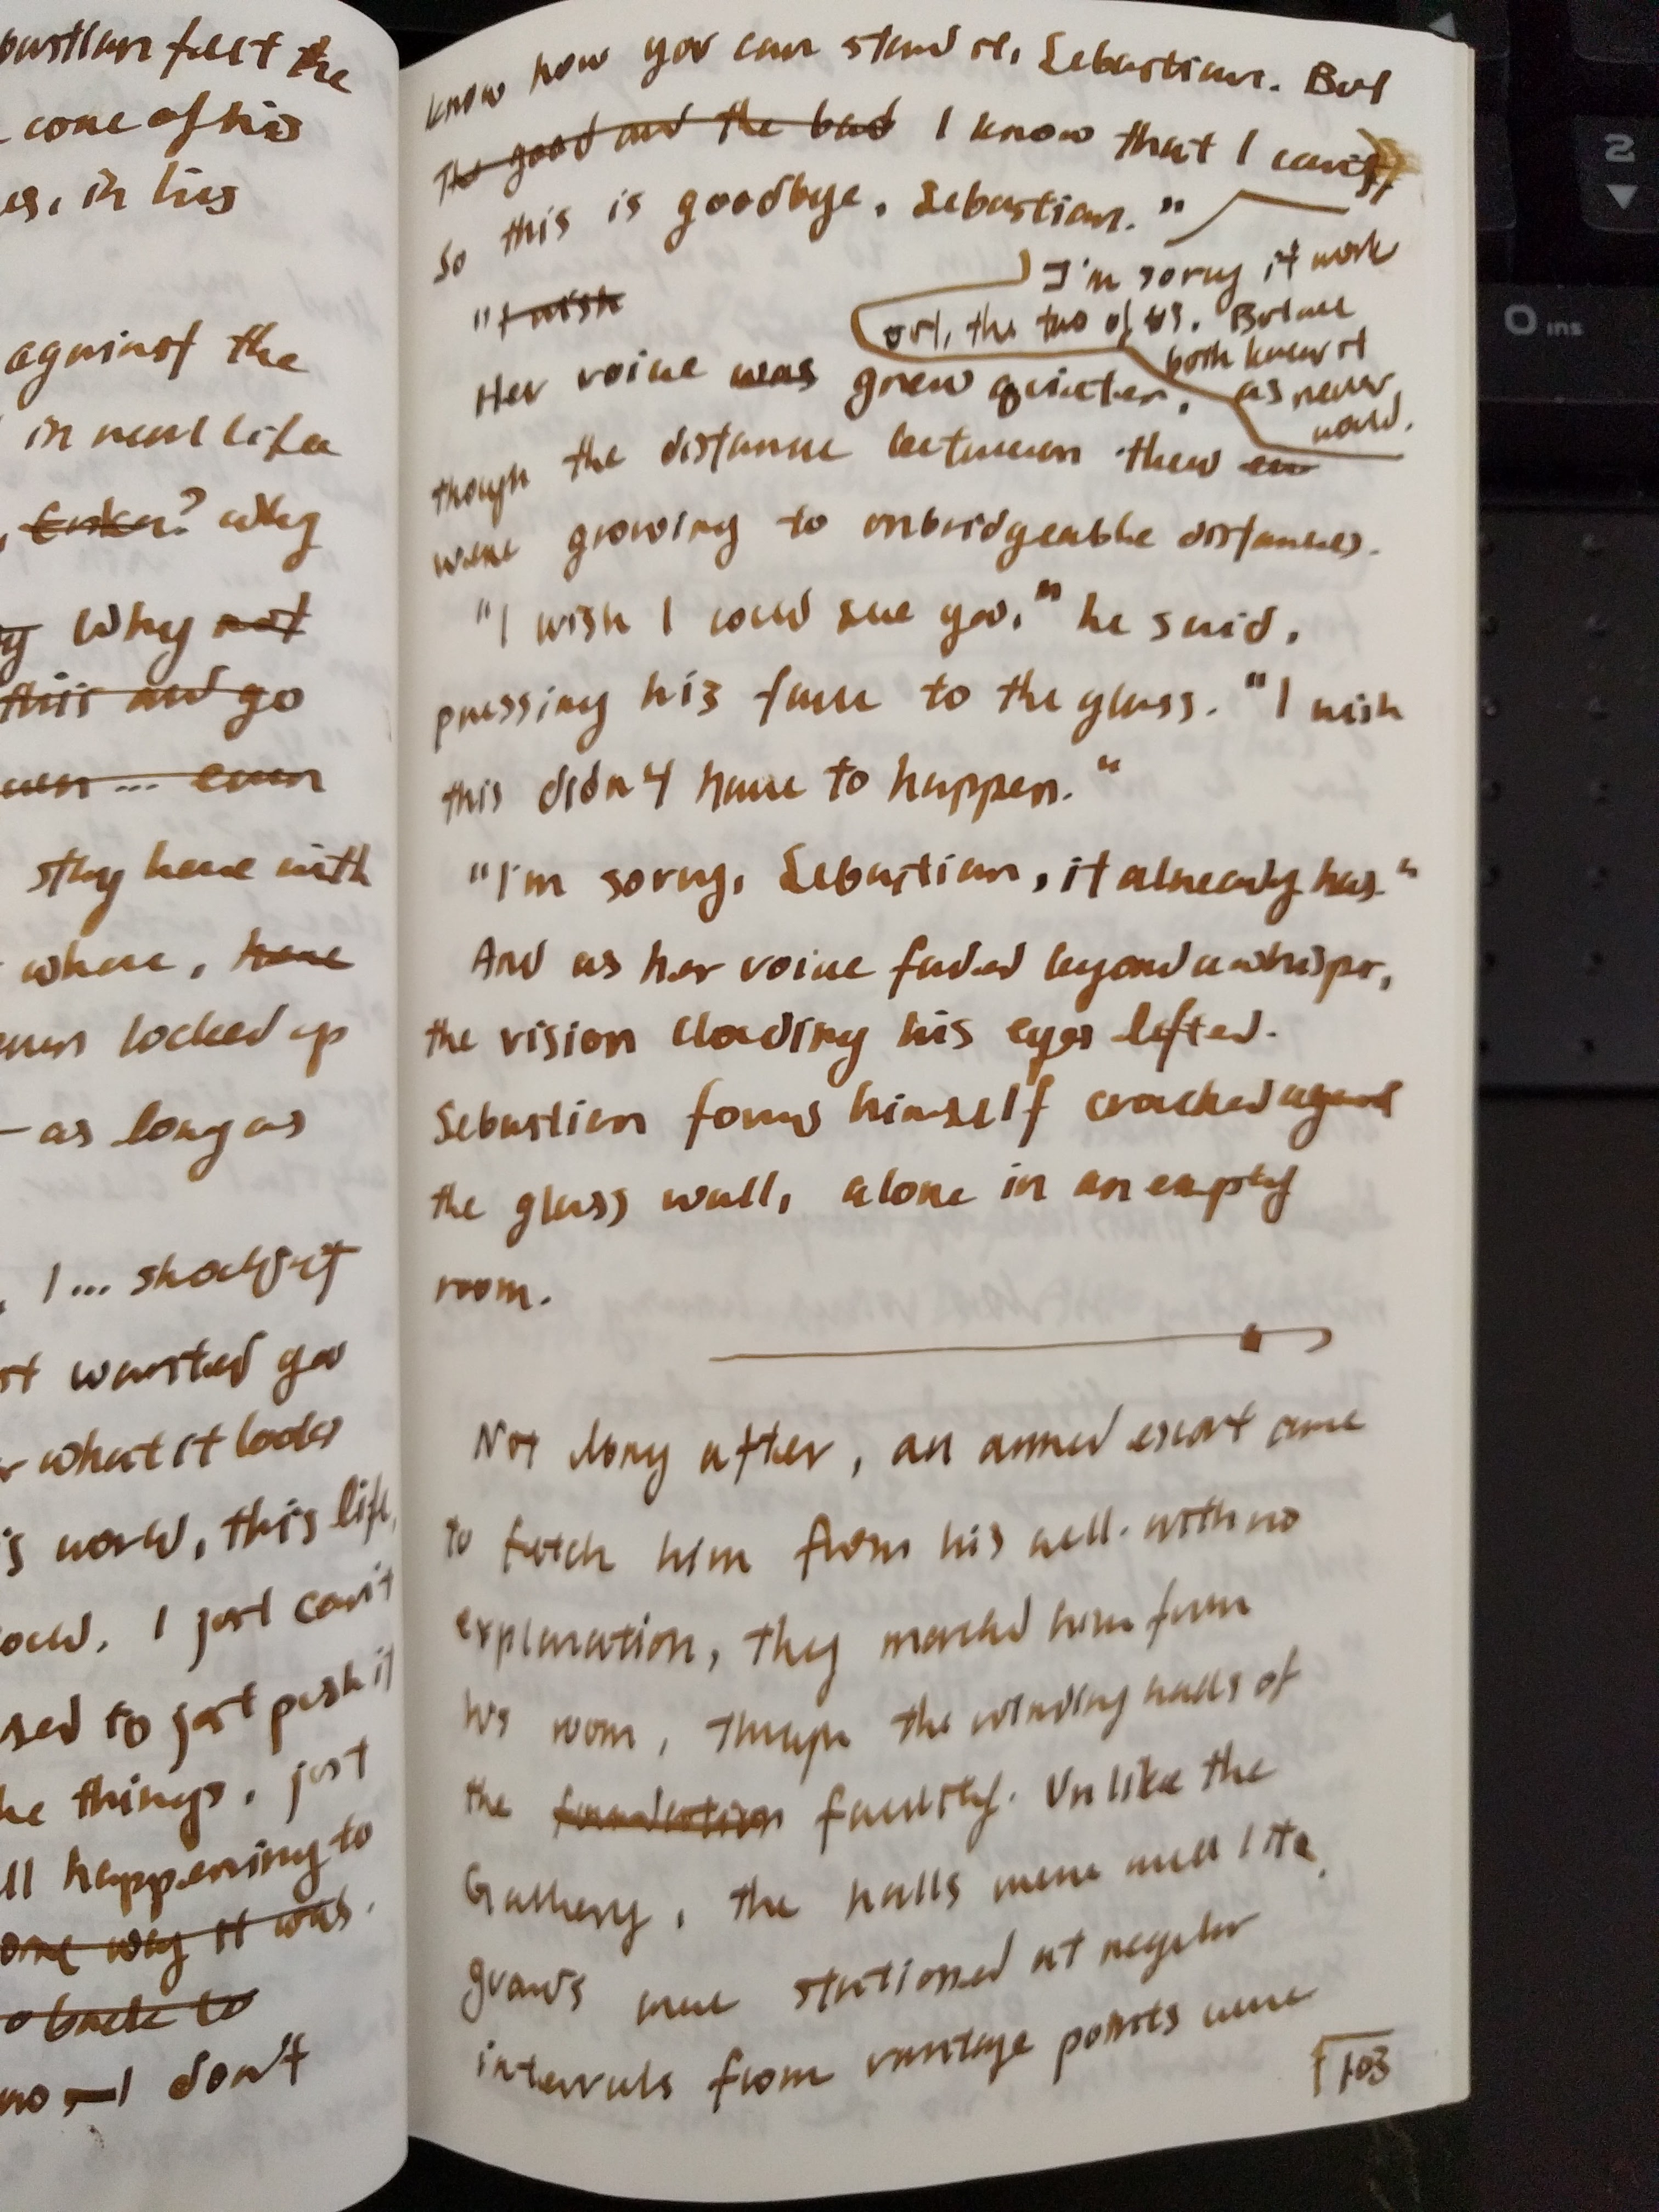 bastian felt the
come of his
es, in his
against the
in real life
? why
Why not
this and go
... even
stay here with
where, here
locked up
— as long as
I ... shouldn't
st wanted you
what it looks
's world, this life,
I just can't
sed to just push it
he things. just
ll happening to
one way it was.
o back to
no — I don't
know how you can stand it, Sebastian. But
The good and the bad I know that I can't,
So this is goodbye, Sebastian."
I'm sorry it work
out, the two of us. But we
both knew it
as never
would.
"I wish
Her voice was grew quieter,
though the distance between them
were growing to unbridgeable distances.
"I wish I could see you," he said,
pressing his face to the glass. "I wish
this didn't have to happen."
"I'm sorry, Sebastian, it already has."
And as her voice faded beyond a whispr,
the vision clouding his eyes lifted.
Sebastian found himself crouched against
the glass wall, alone in an empty
room.
Not long after, an armed escort came
to fetch him from his cell. with no
explanation, they marched him from
his room, through the winding halls of
the foundation facility. Unlike the
Gallery, the halls were well lit.
guards were stationed at regular
intervals from vantage points were
103
2
0 ins